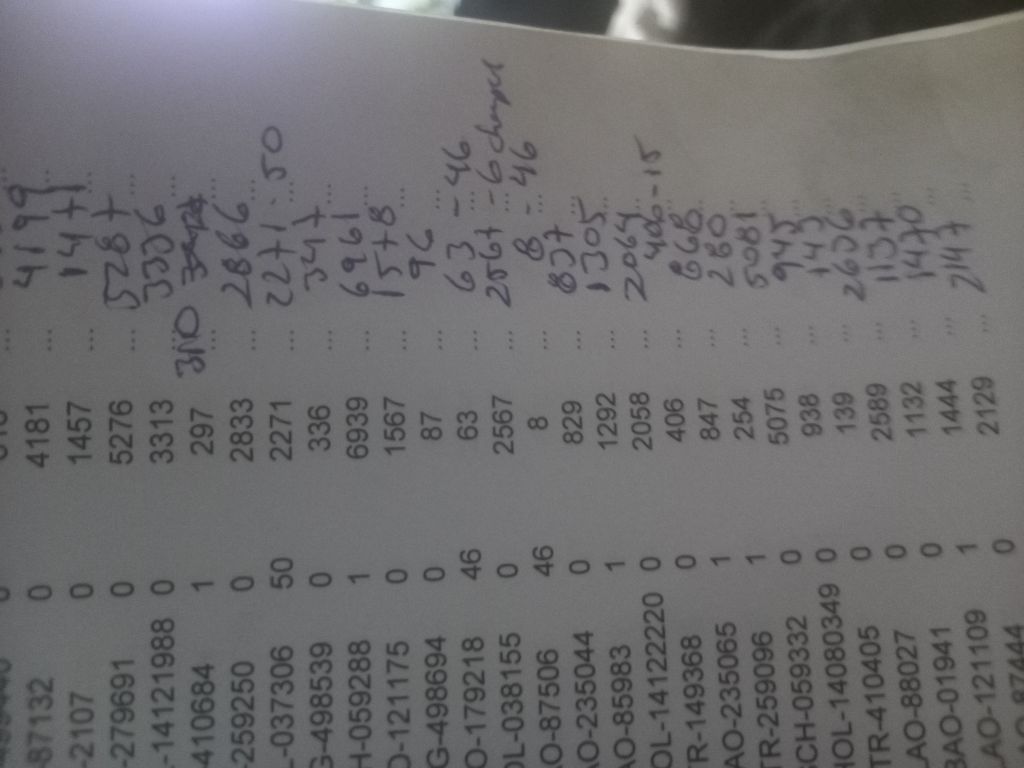 -87132 0 4181 ... 4199 ...
-2107 0 1457 ... 1477 ...
-279691 0 5276 ... 5287 ...
-14121988 0 3313 ... 3336 ...
410684 1 297 ... 310 ...
-259250 0 2833 ... 2866 ...
-037306 50 2271 ... 2271 ... -50
G-498539 0 336 ... 347 ...
H-059288 1 6939 ... 6961 ...
O-121175 0 1567 ... 1578 ...
G-498694 0 87 ... 96 ...
O-179218 46 63 ... 63 ... -46
OL-038155 0 2567 ... 2567 ... -6
AO-875506 46 8 ... 8 ... -46
AO-235044 0 829 ... 837 ...
AO-859983 1 1292 ... 1305 ...
OL-14122220 0 2058 ... 2064 ...
TR-149368 0 406 ... 406 ... -15
AO-235065 1 847 ... 868 ...
TR-259096 1 254 ... 260 ...
CH-059332 0 5075 ... 5081 ...
HOL-14080349 0 938 ... 945 ...
TR-410405 0 139 ... 143 ...
LAO-88027 0 2589 ... 2636 ...
BAO-01941 0 1132 ... 1137 ...
LAO-121109 1 1444 ... 1470 ...
AO-87444 0 2129 ... 2147 ...